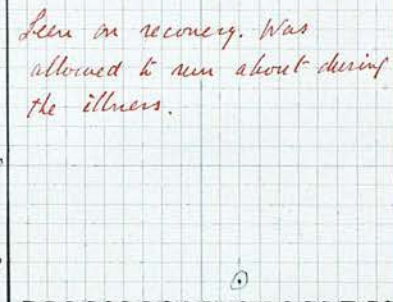 Seen on recovery. Was
allowed to run about during
the illness.